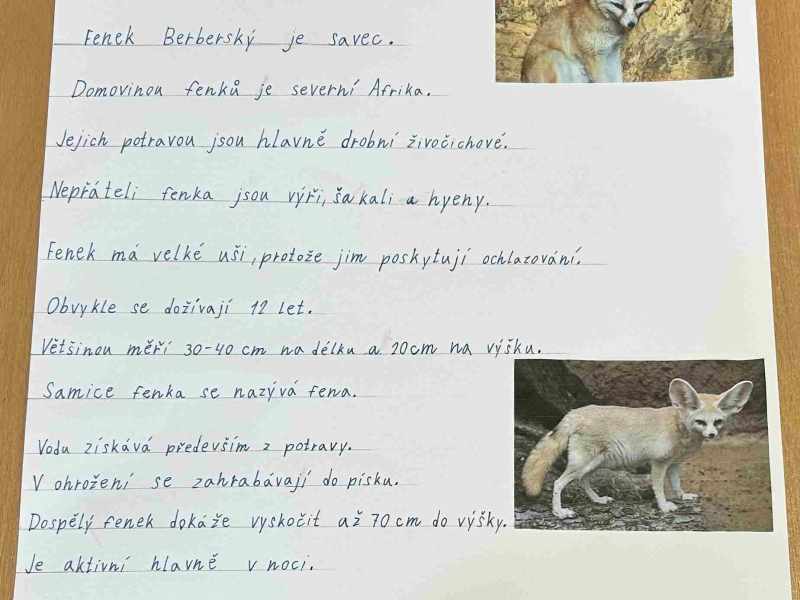 Fenek Berberský je savec.
Domovinou fenků je severní Afrika.
Jejich potravou jsou hlavně drobní živočichové.
Nepřáteli fenka jsou výři, šakali a hyeny.
Fenek má velké uši, protože jim poskytují ochlazování.
Obvykle se dožívají 12 let.
Většinou měří 30-40 cm na délku a 20cm na výšku.
Samice fenka se nazývá fena.
Vodu získává především z potravy.
V ohrožení se zahrabávají do písku.
Dospělý fenek dokáže vyskočit až 70 cm do výšky.
Je aktivní hlavně v noci.